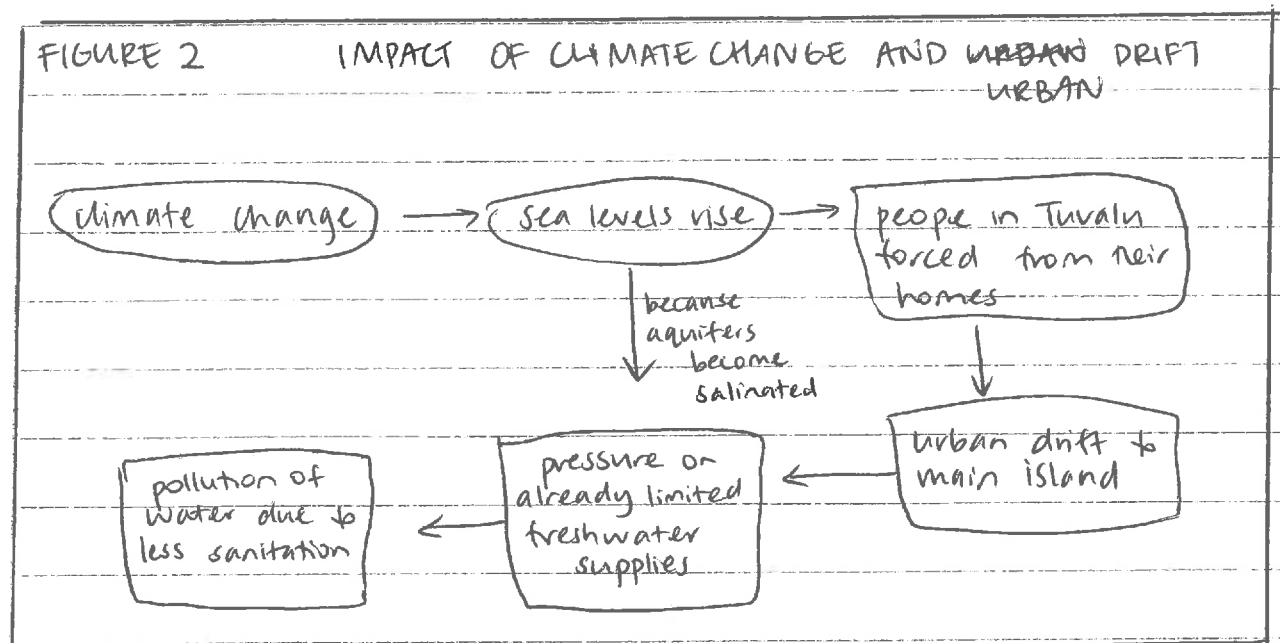 FIGURE 2 IMPACT OF CLIMATE CHANGE AND URBAN DRIFT
URBAN
climate change
sea levels rise
people in Tuvalu
forced from their
homes
because
aquifers
become
salinated
urban drift to
main island
pressure on
already limited
freshwater
supplies
pollution of
water due to
less sanitation